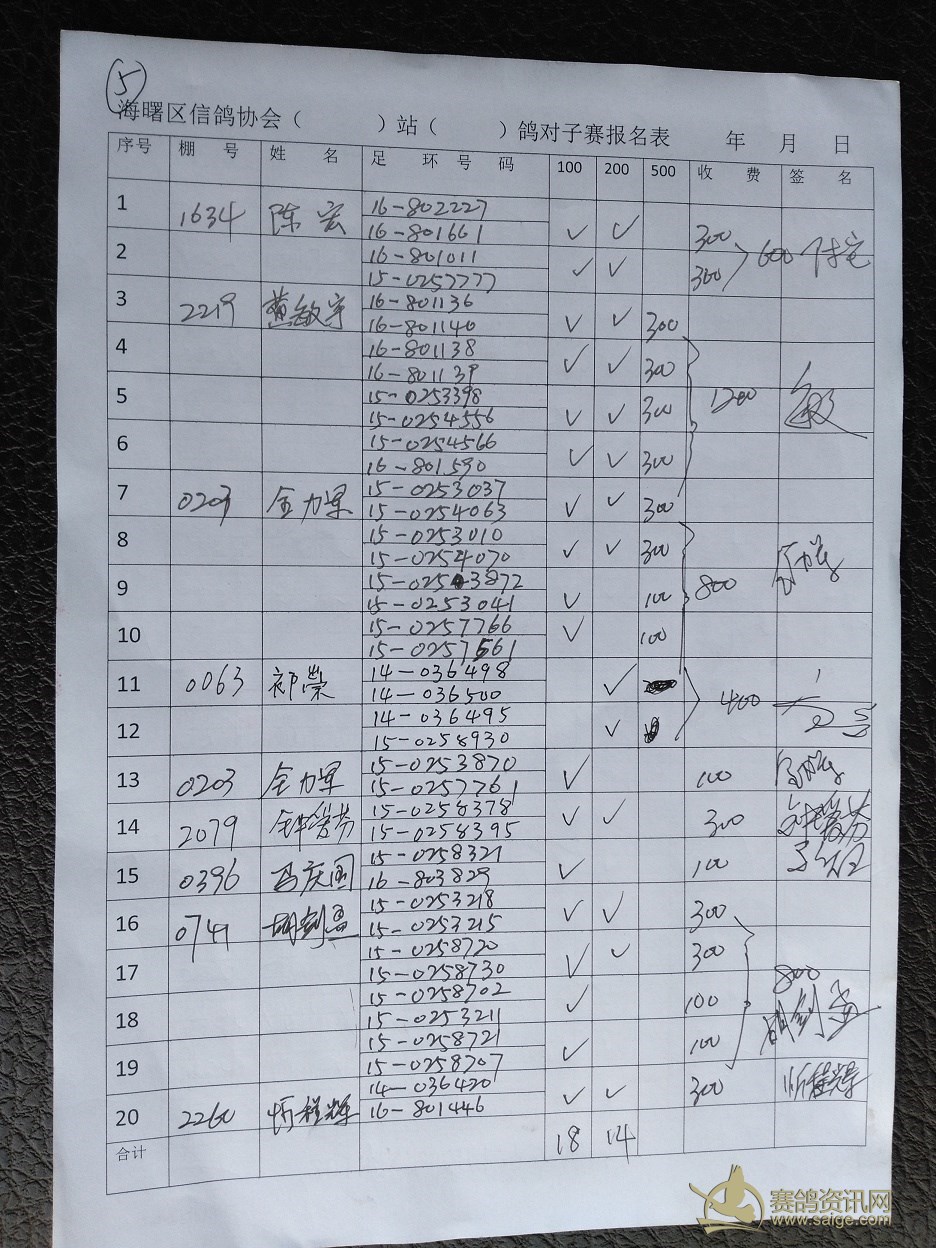 ⑤
海曙区信鸽协会（ ）站（ ）鸽对子赛报名表 年 月 日
序号 棚 号 姓 名 足 环 号 码 100 200 500 收 费 签 名
1 1634 陈宏 16-802227
16-801661 ✓ ✓ 300
2 16-801011 600 陈宏
15-0257777 ✓ ✓ 300
3 2219 黄敏宇 16-801136
16-801140 ✓ ✓ 300
4 16-801138
16-801139 ✓ ✓ 300
5 15-0253398 1200 敏
15-0254556 ✓ ✓ 300
6 15-0254566
16-801590 ✓ ✓ 300
7 0203 全力军 15-0253037
15-0254063 ✓ ✓ 300
8 15-0253010
15-0254070 ✓ ✓ 300
9 15-0253872 800
15-0253041 ✓ 100
10 15-0257766
15-0257561 ✓ 100
11 0063 祁荣 14-036498
14-036500 ✓ 400
12 14-036495
15-0258930 ✓
13 0203 全力军 15-0253870
15-0257761 ✓ 100
14 2079 钟签芳 15-0258378
15-0258395 ✓ ✓ 300
15 0396 冯庆国 15-0258321
16-803829 ✓ 100
16 0741 胡剑孟 15-0253218
15-0253215 ✓ ✓ 300
17 15-0258720
15-0258730 ✓ ✓ 300
18 15-0258702 800
15-0253211 ✓ 100 胡剑孟
19 15-0258721
15-0258707 ✓ 100
20 2260 忻程辉 14-036420
16-801446 ✓ ✓ 300 忻程辉
合计 18 14
赛鸽资讯网
www.saige.com